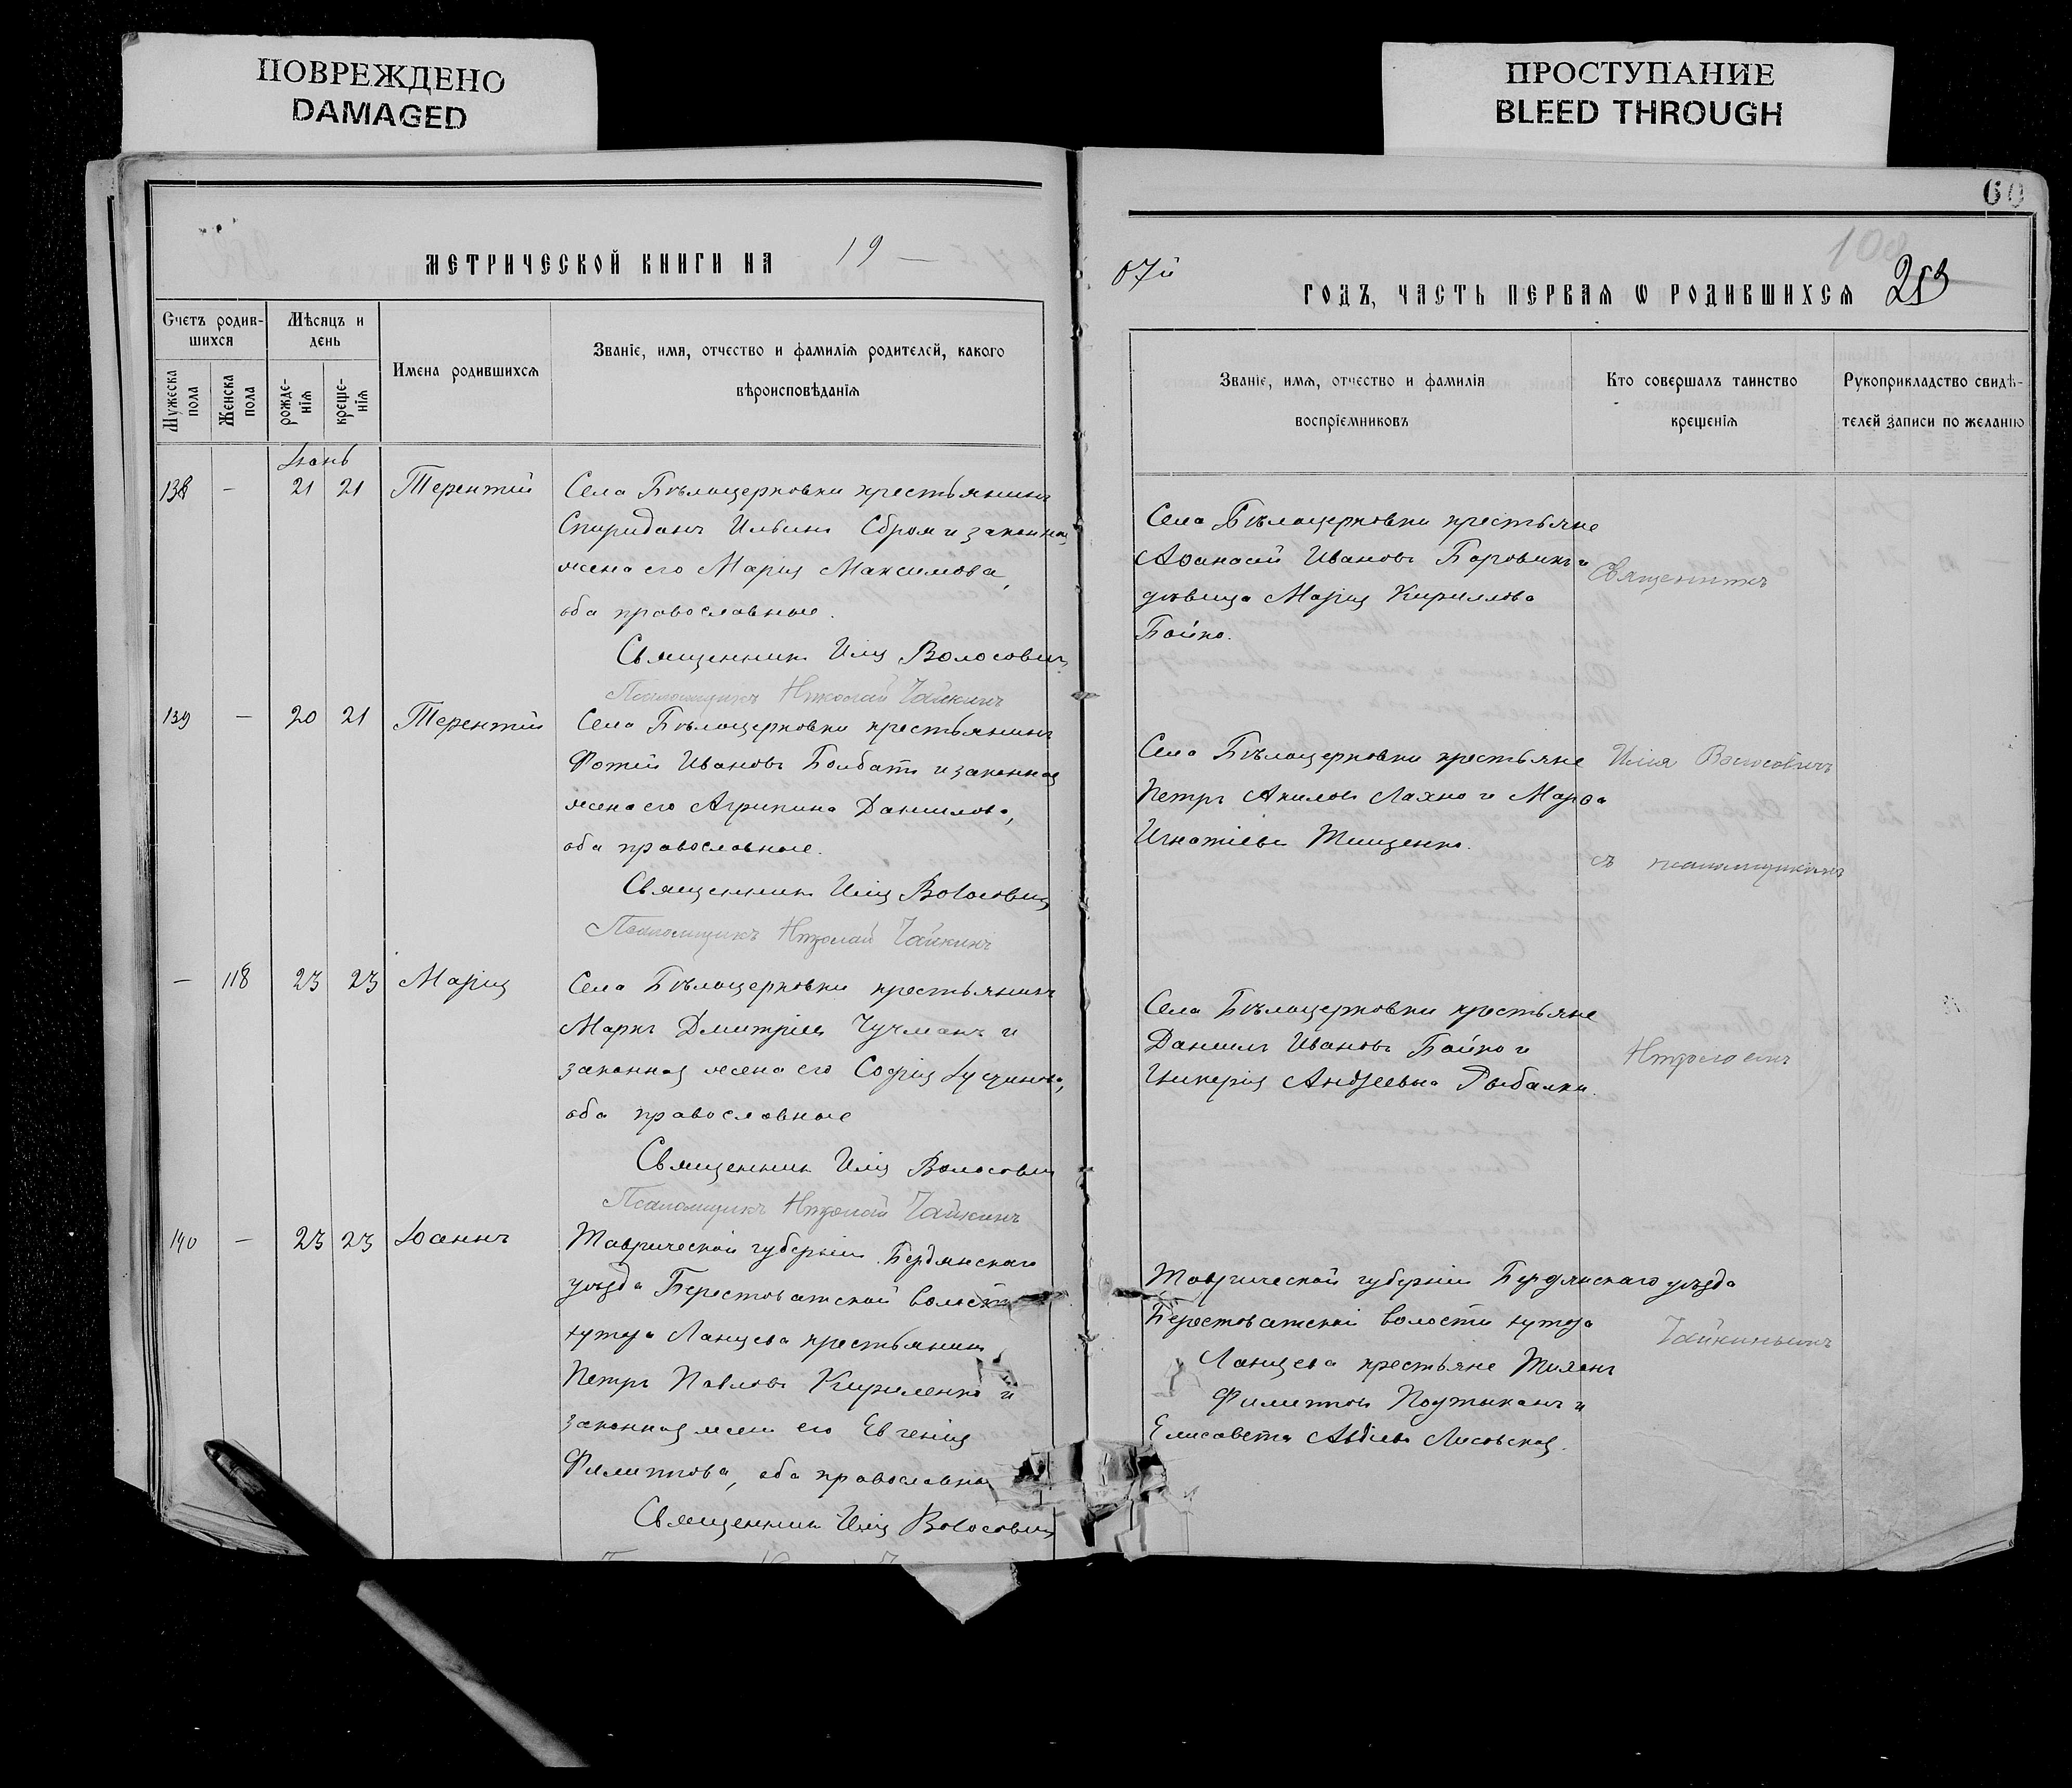 ПОВРЕЖДЕНО
DAMAGED
ПРОСТУПАНИЕ
BLEED THROUGH
60
МЕТРИЧЕСКОЙ КНИГИ НА 19 —
Счетъ родив-
шихся
Мѣсяцъ и
день
Мужеска
пола
Женска
пола
рожде-
нїѧ
креще-
нїѧ
Имена родившихсѧ
Званїе, имѧ, отчество и фамилїѧ родителей, какого
вѣроисповѣданїѧ
Іюнь
138 — 21 21 Терентій Села Бѣлоцерковки крестьянинъ
Спиридонъ Ильинъ и законная
жена его Марія Максимова,
оба православные.
Священникъ Илія Волосовичъ
Псаломщикъ Николай Чайкинъ
139 — 20 21 Терентій Села Бѣлоцерковки крестьянинъ
Фотій Ивановъ и законная
жена его Агрипина Даниилова,
оба православные.
Священникъ Илія Волосовичъ
Псаломщикъ Николай Чайкинъ
— 118 23 23 Марія Села Бѣлоцерковки крестьянинъ
Маркъ Дмитріевъ Чучманъ и
законная жена его Софія Іустинова,
оба православные
Священникъ Илія Волосовичъ
Псаломщикъ Николай Чайкинъ
140 — 23 23 Іоаннъ Таврической губерніи Бердянскаго
уѣзда Берестоватской волости
хутора Ланцева крестьянинъ
Петръ Павловъ Кириленко и
законная жена его Евгенія
Филиппова, оба православны
Священникъ Илія Волосовичъ
07й
108
253
ГОДЪ, ЧАСТЬ ПЕРВАѦ Ѡ РОДИВШИХСѦ
Званїе, имѧ, отчество и фамилїѧ
воспрїемниковъ
Кто совершалъ таинство
крещенїѧ
Рукоприкладство свидѣ-
телей записи по желанію
Села Бѣлоцерковки крестьяне
Аѳанасій Ивановъ Боровикъ и
дѣвица Марія Кириллова
Бойко.
Священникъ
Села Бѣлоцерковки крестьяне
Петръ Акиловъ Лахно и Марѳа
Игнатіева Тищенко.
Илія Волосовичъ
съ псаломщикомъ
Села Бѣлоцерковки крестьяне
Даниилъ Ивановъ Бойко и
Гликерія Андреевна Рыбалка.
Николаемъ
Таврической губерніи Бердянскаго уѣзда
Берестоватской волости хутора
Ланцева крестьяне Тихонъ
Филипповъ и
Елисавета Авдіева Лисовская.
Чайкинымъ